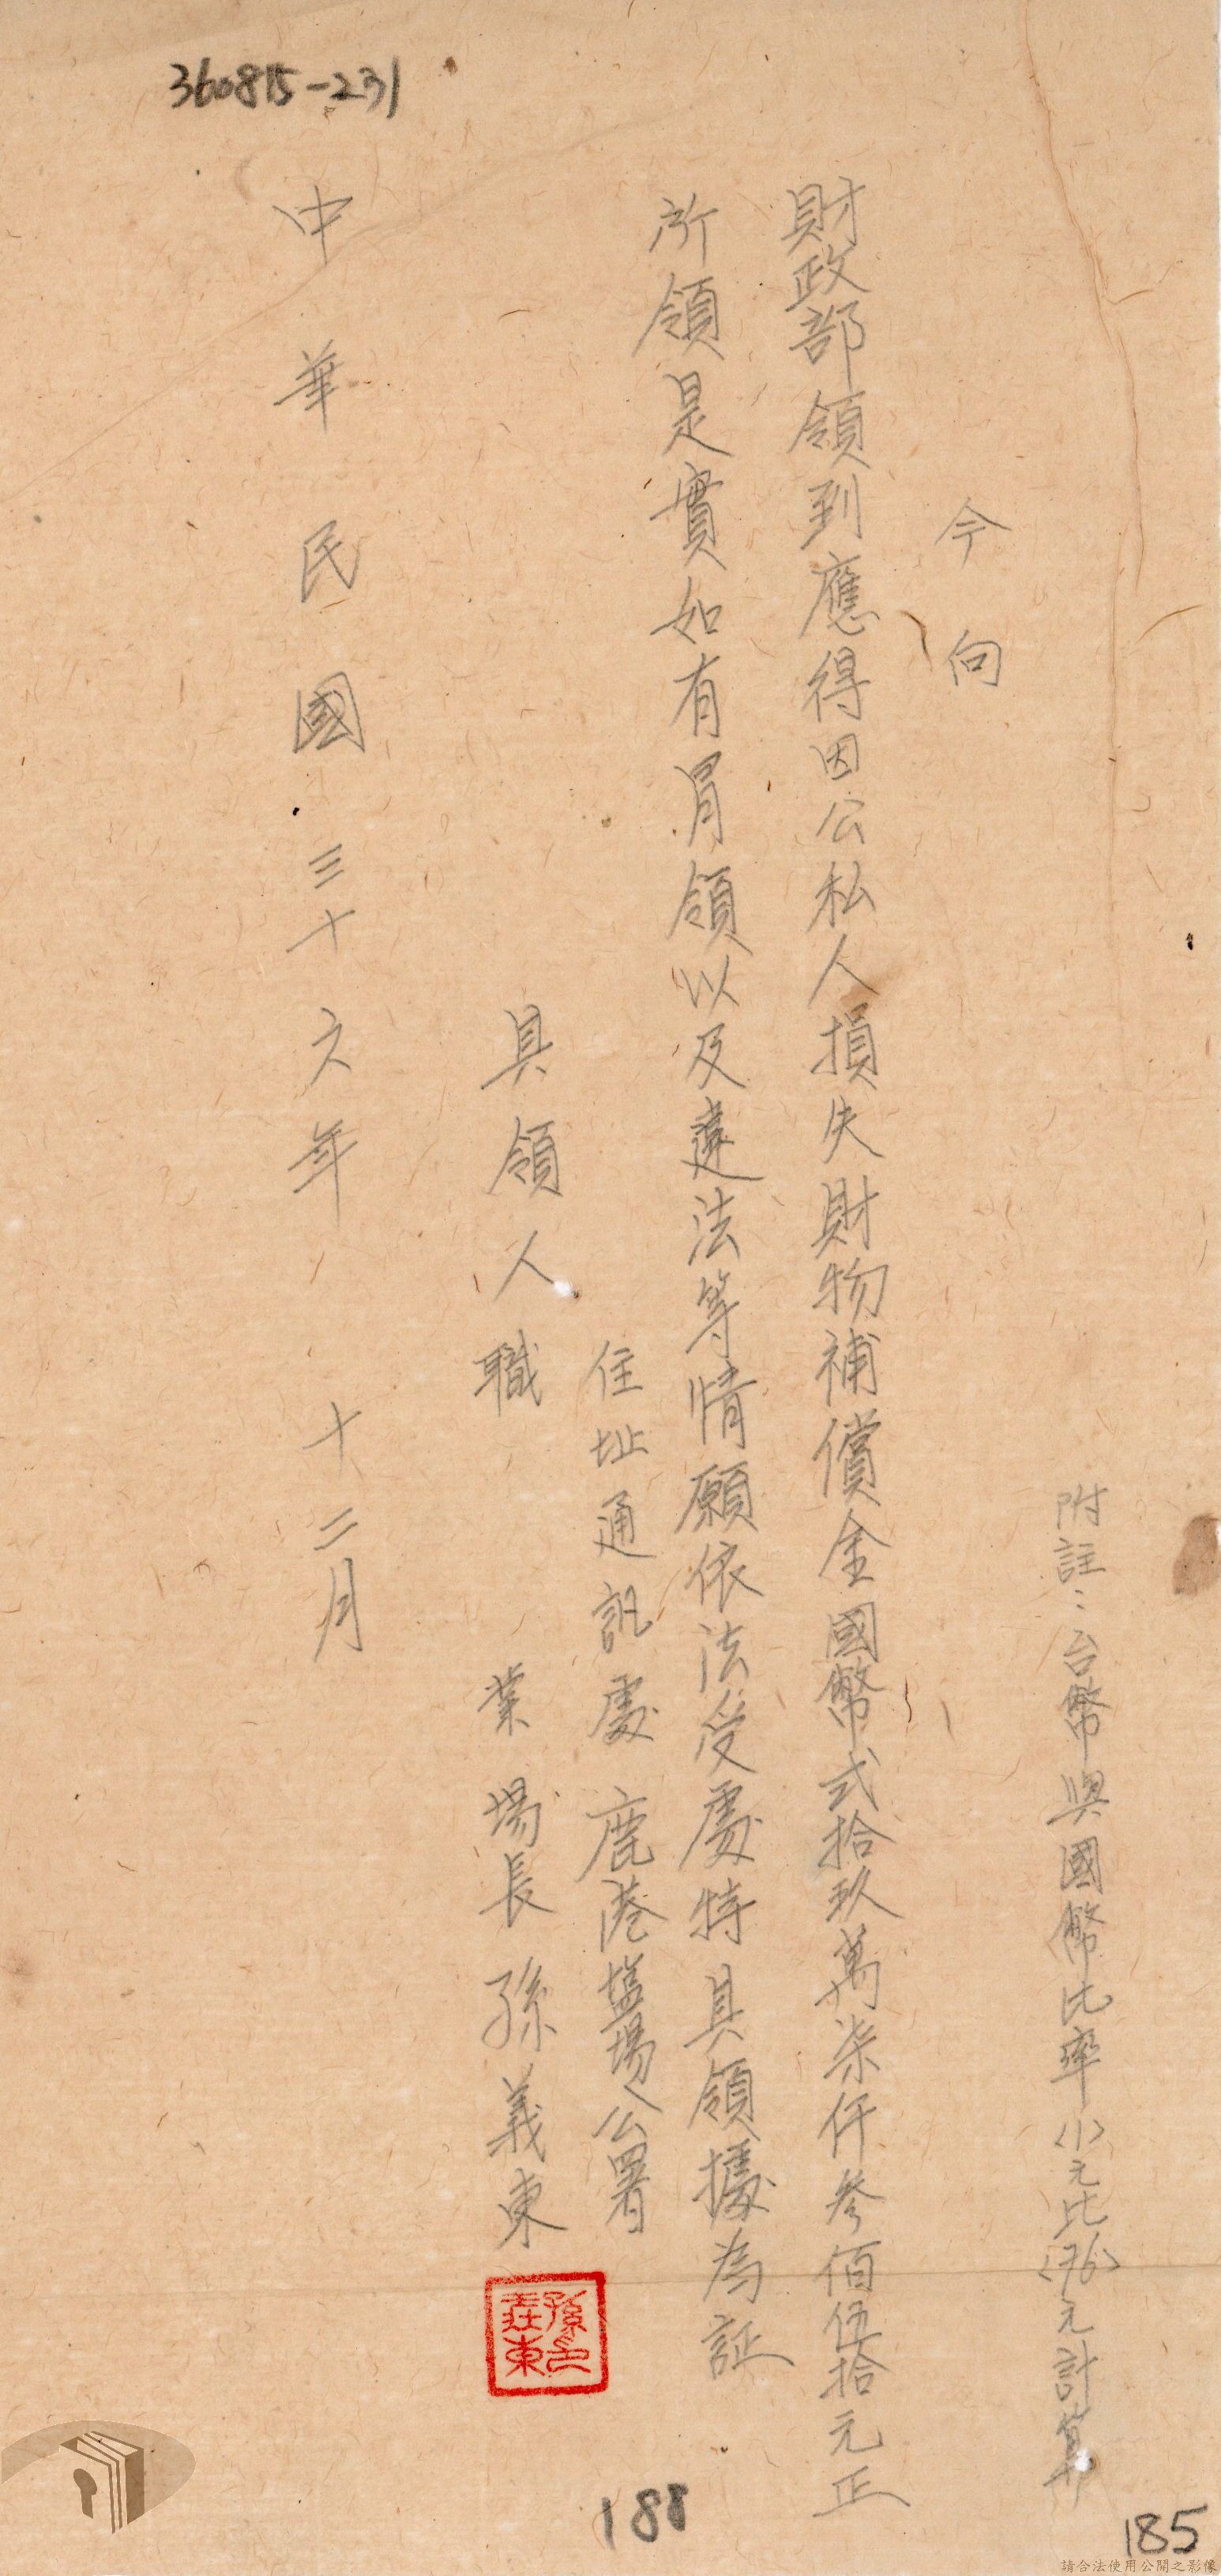 360815-231
附註：台幣與國幣比率(1)元比(76)元計算
今向
財政部領到應得因公私人損失財物補償金國幣弍拾玖萬柒仟參佰伍拾元正
所領是實如有冐領以及違法等情願依法受處特具領據為証
住址通訊處鹿港塩場公署
具領人職業場長孫義東
中華民國三十六年十二月
188
185
請合法使用公開之影像